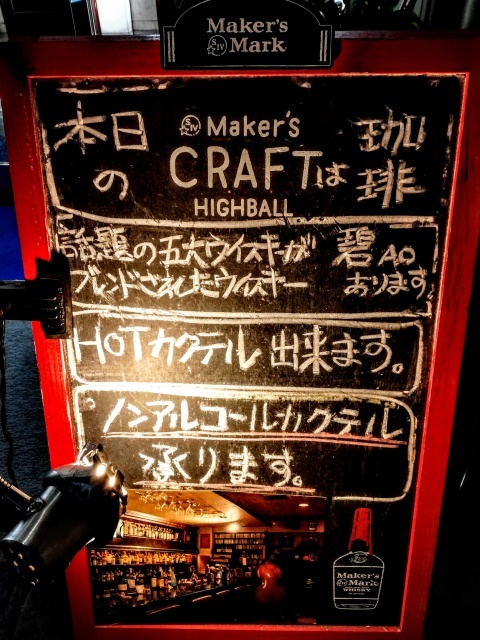 Maker's
SIV Mark
本日 Maker's 珈
の CRAFTは 琲
HIGHBALL
話題の五大ウイスキーが 碧AO
ブレンドされたウィスキー あります
HOTカクテル 出来ます。
ノンアルコールカクテル
承ります。
Maker's
Mark
WHISKY